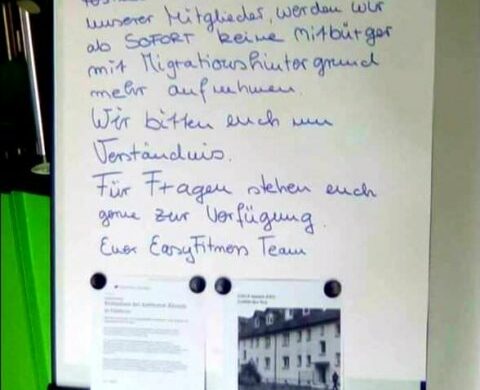 unserer Mitglieder, werden wir
ab SOFORT keine Mitbürger
mit Migrationshintergrund
mehr aufnehmen.
Wir bitten euch um
Verständnis.
Für Fragen stehen euch
gerne zur Verfügung.
Euer EasyFitness Team